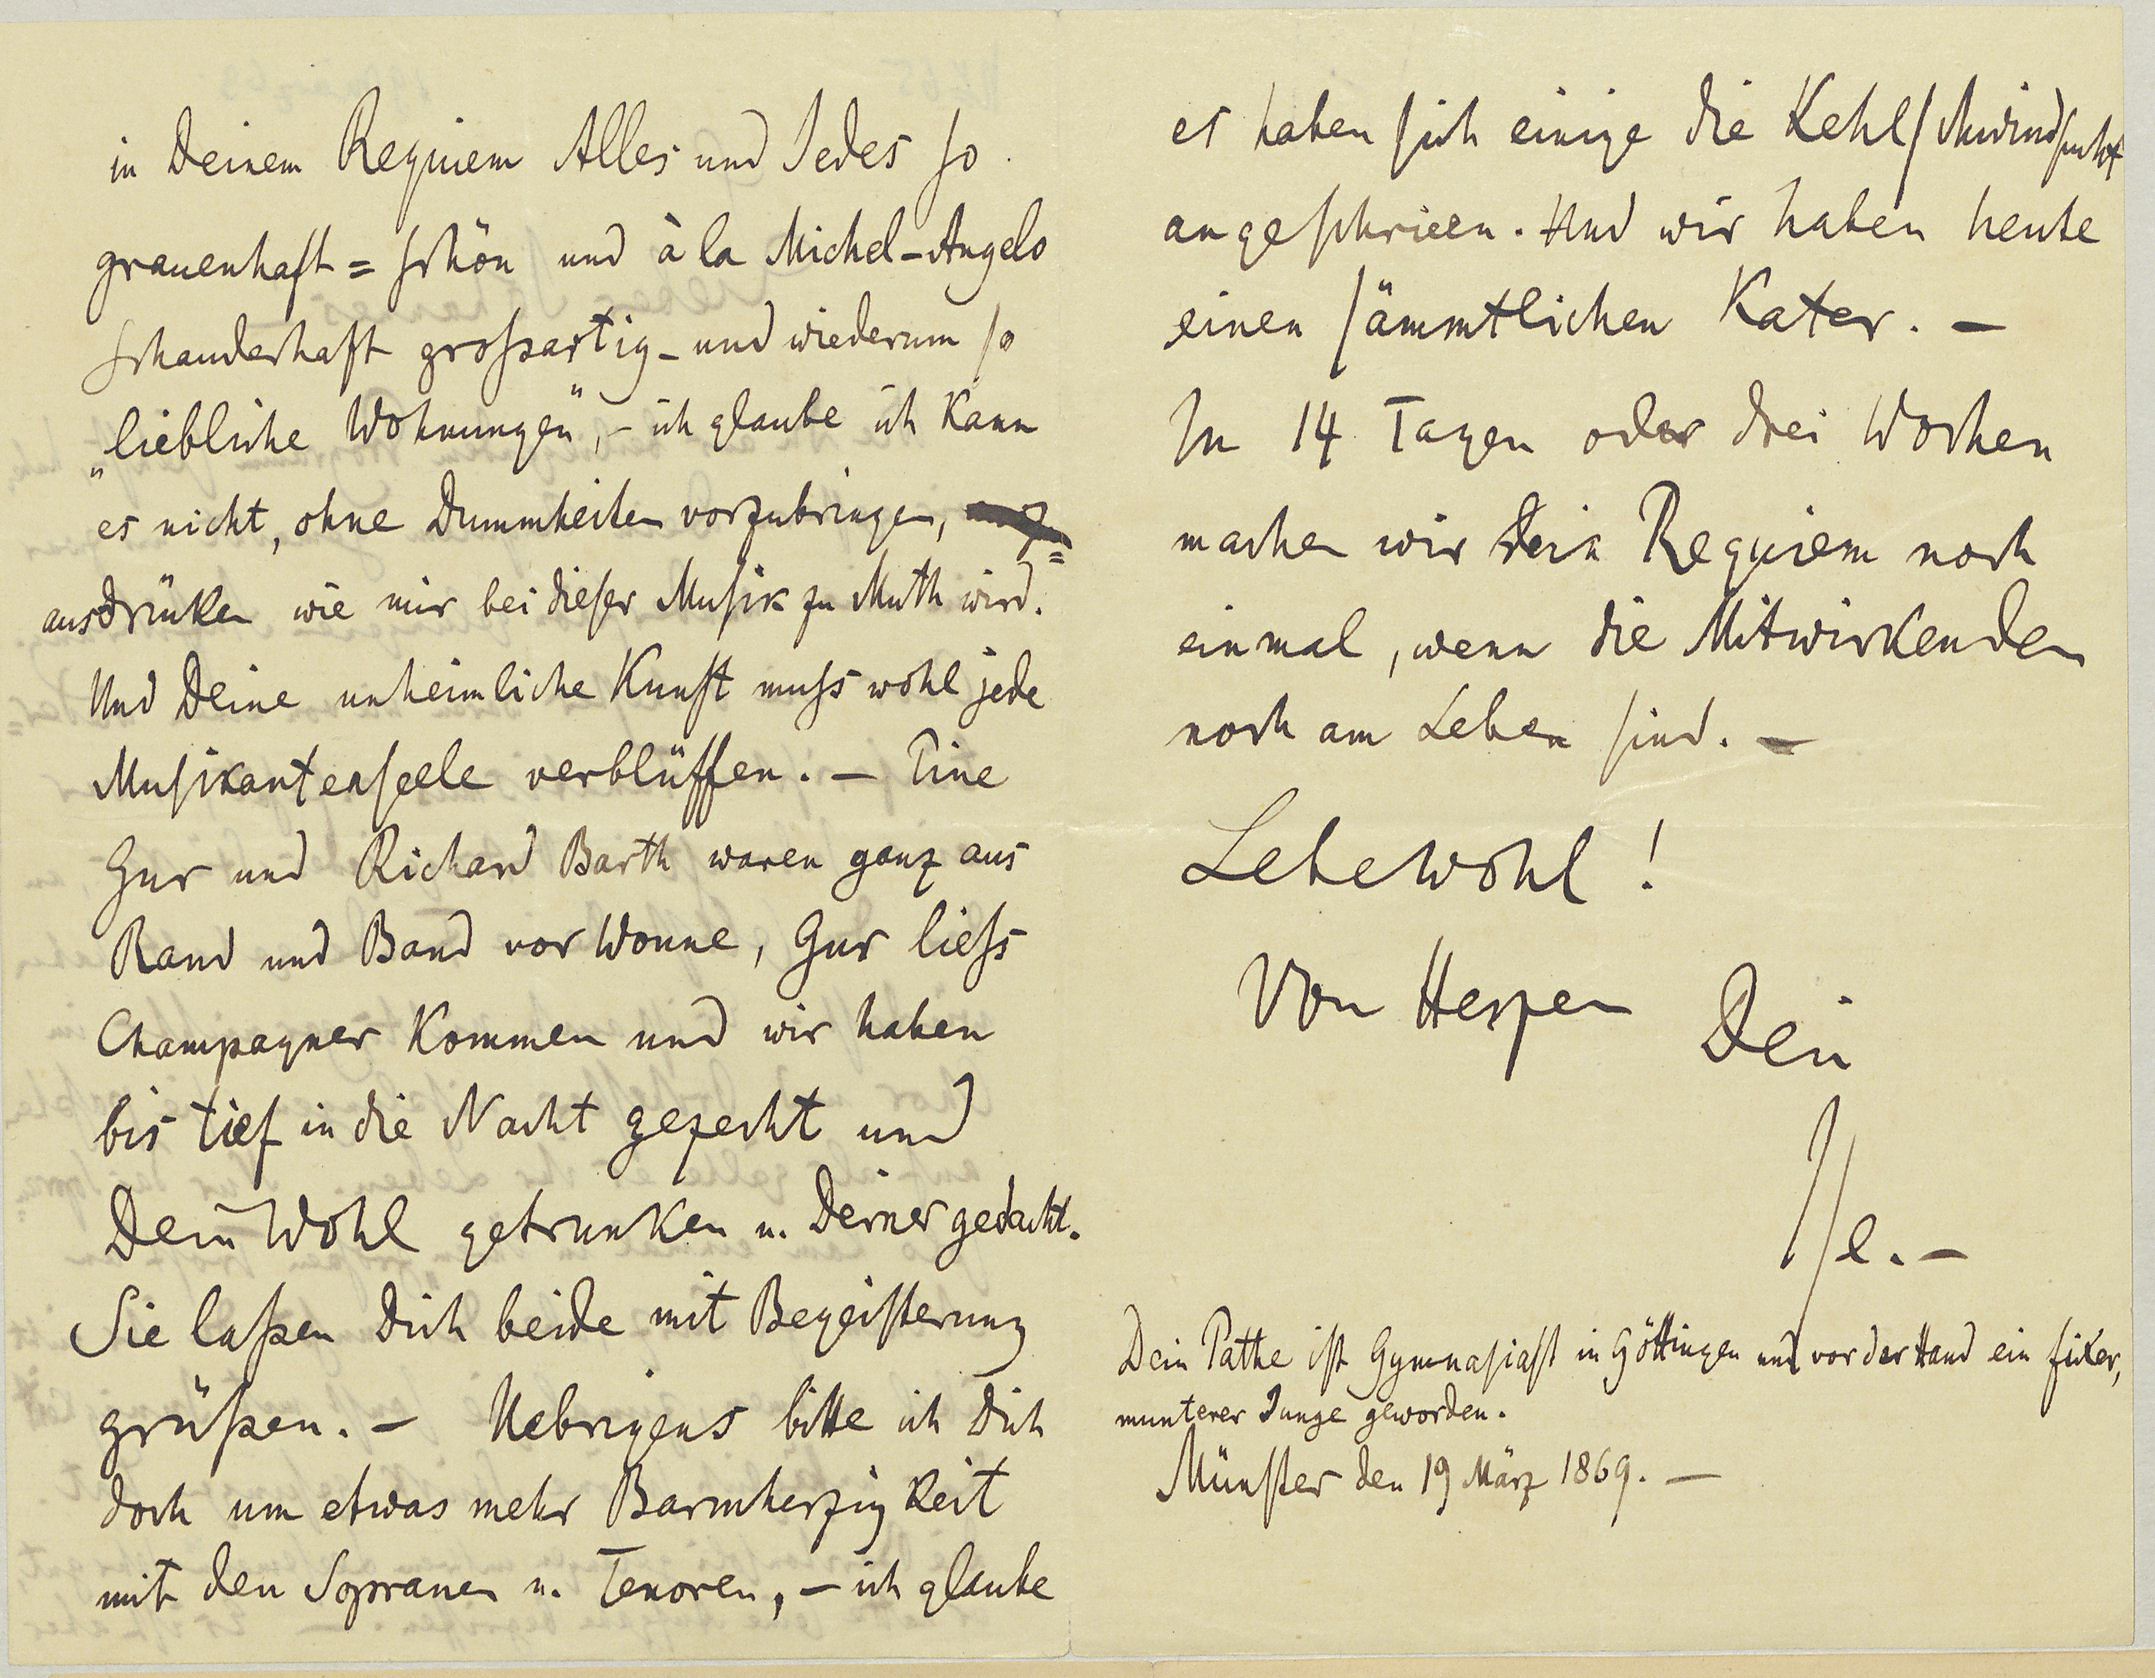 in Deinem Requiem Alles und Jedes so
grauenhaft = schön und à la Michel-Angelo
schauderhaft großartig - und wiederum so
„liebliche Wohnungen", - ich glaube ich kann
es nicht, ohne Dummheiten vorzubringen,
ausdrücken wie mir bei dieser Musik zu Muth wird.
Und Deine unheimliche Kunst muss wohl jede
Musikantenseele verblüffen. - Eine
Gur und Richard Barth waren ganz aus
Rand und Band vor Wonne, Gur liess
Champagner kommen und wir haben
bis tief in die Nacht gezecht und
Dein Wohl getrunken u. Deiner gedacht.
Sie laßen Dich beide mit Begeisterung
grüßen. - Uebrigens bitte ich Dich
doch um etwas mehr Barmherzigkeit
mit den Sopranen u. Tenoren, - ich glaube
es haben sich einige die Kehlschwindsucht
angeschrieen. Und wir haben heute
einen sämmtlichen Kater. -
In 14 Tagen oder drei Wochen
machen wir Dein Requiem noch
einmal, wenn die Mitwirkenden
noch am Leben sind. -
Lebewohl!
Von Herzen Dein
Ise. -
Dein Pathe ist Gymnasiast in Göttingen und vor der Hand ein fixer,
munterer Junge geworden.
Münster den 19 März 1869. -